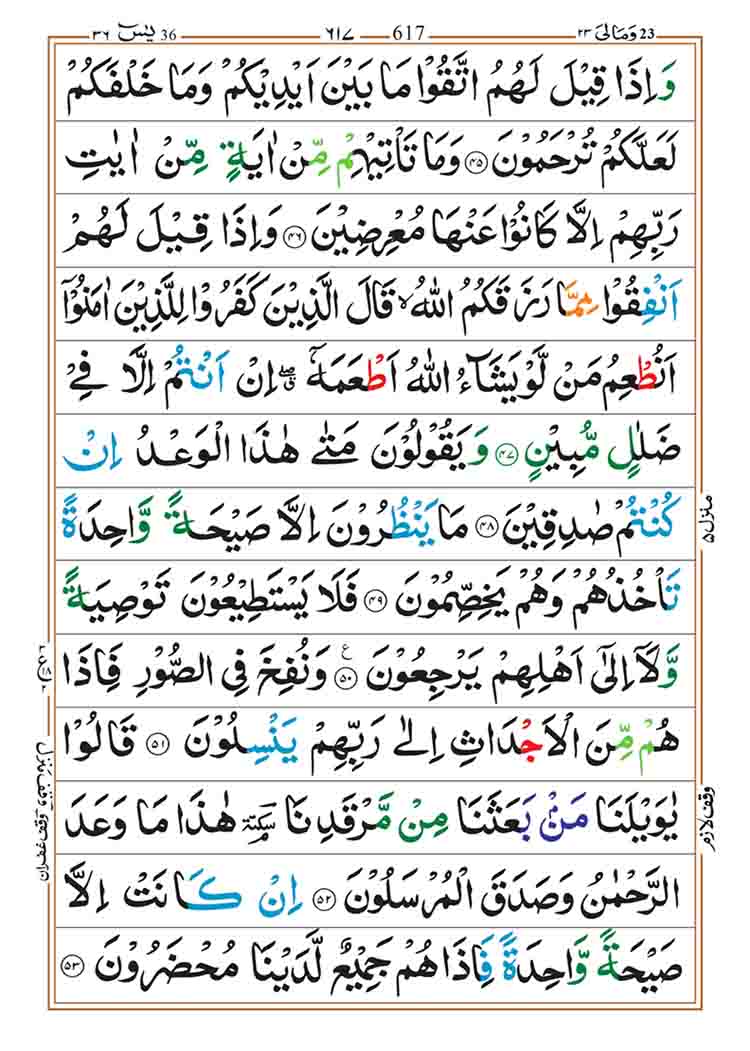 36 يٰسٓ ٣٦ 617 ٦١٧ 23 وَمَالِيَ ٢٣
وَاِذَا قِيْلَ لَهُمُ اتَّقُوْا مَا بَيْنَ اَيْدِيْكُمْ وَمَا خَلْفَكُمْ
لَعَلَّكُمْ تُرْحَمُوْنَ ۝٤٥ وَمَا تَاْتِيْهِمْ مِّنْ اٰيَةٍ مِّنْ اٰيٰتِ
رَبِّهِمْ اِلَّا كَانُوْا عَنْهَا مُعْرِضِيْنَ ۝٤٦ وَاِذَا قِيْلَ لَهُمْ
اَنْفِقُوْا مِمَّا رَزَقَكُمُ اللّٰهُ ۙ قَالَ الَّذِيْنَ كَفَرُوْا لِلَّذِيْنَ اٰمَنُوْۤا
اَنُطْعِمُ مَنْ لَّوْ يَشَآءُ اللّٰهُ اَطْعَمَهٗۤ ۖ اِنْ اَنْتُمْ اِلَّا فِيْ
ضَلٰلٍ مُّبِيْنٍ ۝٤٧ وَيَقُوْلُوْنَ مَتٰى هٰذَا الْوَعْدُ اِنْ
كُنْتُمْ صٰدِقِيْنَ ۝٤٨ مَا يَنْظُرُوْنَ اِلَّا صَيْحَةً وَّاحِدَةً
تَاْخُذُهُمْ وَهُمْ يَخِصِّمُوْنَ ۝٤٩ فَلَا يَسْتَطِيْعُوْنَ تَوْصِيَةً
وَّلَاۤ اِلٰٓى اَهْلِهِمْ يَرْجِعُوْنَ ۝٥٠ ع وَنُفِخَ فِي الصُّوْرِ فَاِذَا
هُمْ مِّنَ الْاَجْدَاثِ اِلٰى رَبِّهِمْ يَنْسِلُوْنَ ۝٥١ قَالُوْا
يٰوَيْلَنَا مَنْۢ بَعَثَنَا مِنْ مَّرْقَدِنَا سكتة هٰذَا مَا وَعَدَ
الرَّحْمٰنُ وَصَدَقَ الْمُرْسَلُوْنَ ۝٥٢ اِنْ كَانَتْ اِلَّا
صَيْحَةً وَّاحِدَةً فَاِذَا هُمْ جَمِيْعٌ لَّدَيْنَا مُحْضَرُوْنَ ۝٥٣
منزل ٥
وقف لازم
وقف غفران